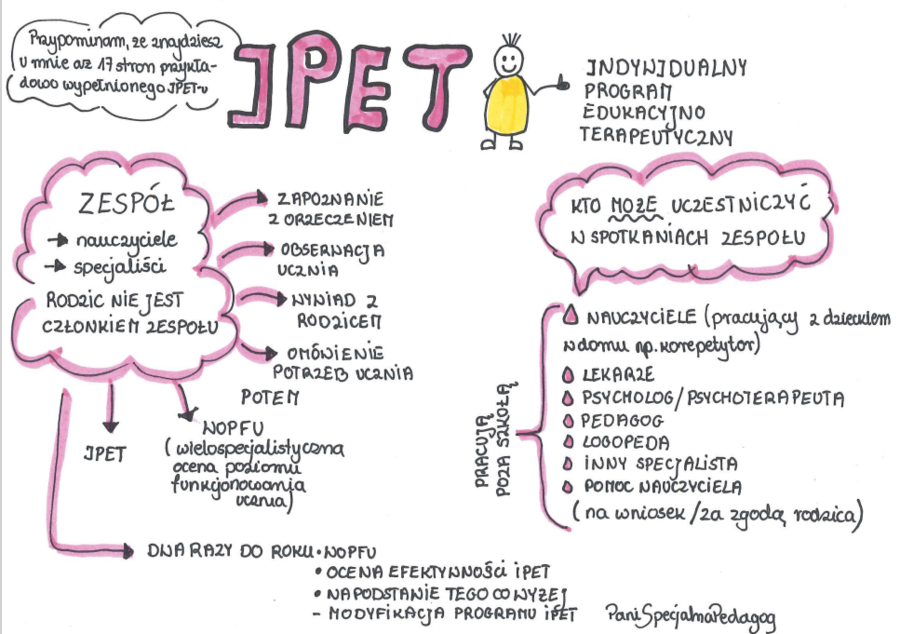 Przypominam, że znajdziesz
u mnie aż 17 stron przykła-
dowo wypełnionego IPET-u
IPET
INDYWIDUALNY
PROGRAM
EDUKACYJNO
TERAPEUTYCZNY
ZESPÓŁ
→ nauczyciele
→ specjaliści
RODZIC NIE JEST
CZŁONKIEM ZESPOŁU
ZAPOZNANIE
Z ORZECZENIEM
OBSERWACJA
UCZNIA
WYWIAD Z
RODZICEM
OMÓWIENIE
POTRZEB UCZNIA
POTEM
IPET
WOPFU
(wielospecjalistyczna
ocena poziomu
funkcjonowania
ucznia)
DWA RAZY DO ROKU • WOPFU
• OCENA EFEKTYWNOŚCI IPET
• NA PODSTANIE TEGO CO WYŻEJ
- MODYFIKACJA PROGRAMU IPET
KTO MOŻE UCZESTNICZYĆ
W SPOTKANIACH ZESPOŁU
PRACUJĄ
POZA SZKOŁĄ
NAUCZYCIELE (pracujący z dzieckiem
w domu np. korepetytor)
LEKARZE
PSYCHOLOG/PSYCHOTERAPEUTA
PEDAGOG
LOGOPEDA
INNY SPECJALISTA
POMOC NAUCZYCIELA
(na wniosek/za zgodą rodzica)
PaniSpecjalnaPedagog